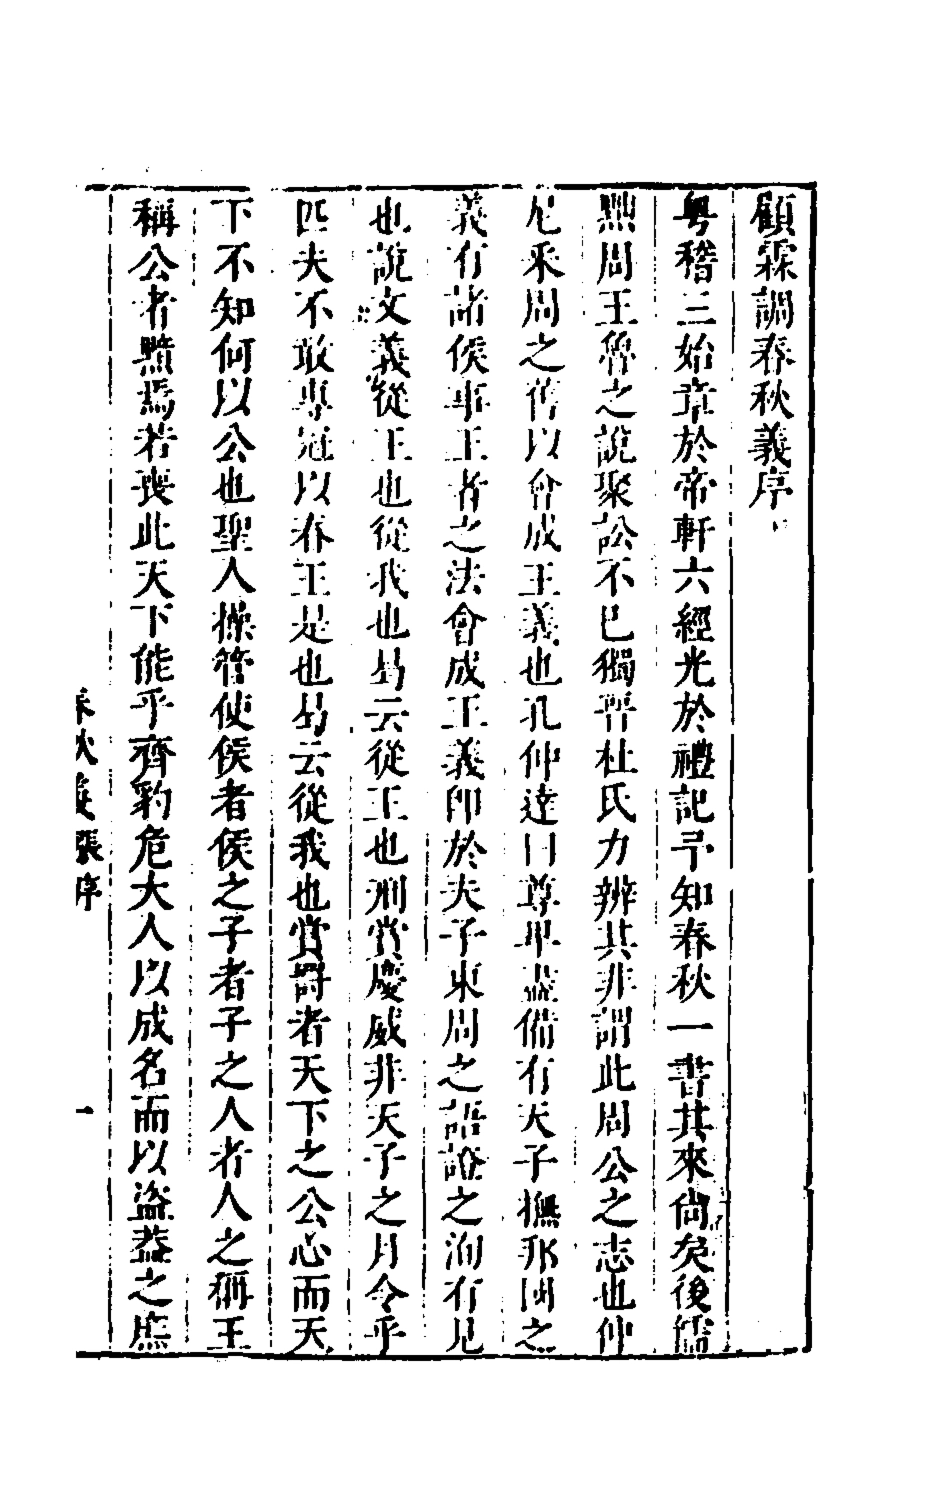 顧霖調春秋義序
粤稽三始章於帝軒六經光於禮記予知春秋一書其來尚矣後儒
黜周王魯之說聚訟不已獨晉杜氏力辨其非謂此周公之志也仲
尼釆周之舊以會成王義也孔仲達曰尊卑盡備有天子撫邦國之
義有諸侯事王者之法會成王義卽於夫子東周之語證之洵有見
也說文義從王也從我也易云從王也刑賞慶威非天子之月令乎
匹夫不敢專冠以春王是也易云從我也賞罰者天下之公心而天
下不知何以公也聖人操管使侯者侯之子者子之人者人之稱王
稱公者黜焉若喪此天下能乎齊豹危大人以成名而以盜葢之庶
春秋義 張序
一